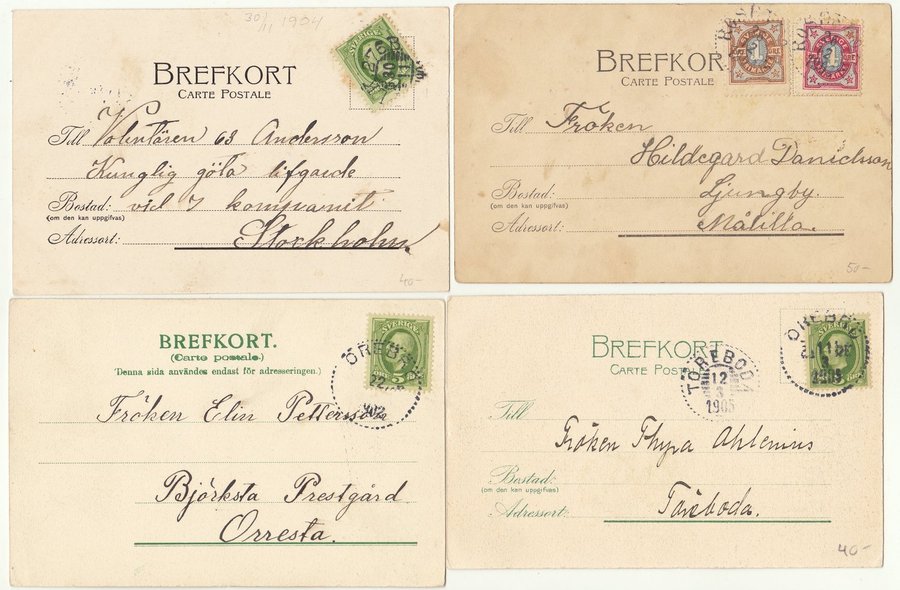 30/11 1904
SVERIGE
BREFKORT
CARTE POSTALE
Till Volontären 63 Andersson
Kunglig göta lifgarde
Bostad: vid 7 kompanit
(om den kan uppgifvas)
Adressort: Stockholm
40-
SVERIGE
BREFKORT
CARTE POSTALE
Till Fröken
Hildegard Danielsson
Bostad: Ljungby
(om den kan uppgifvas)
Adressort: Målilla
50-
SVERIGE
BREFKORT.
(Carte postale.)
(Denna sida användes endast för adresseringen.)
ÖREBRO
Fröken Elin Pettersson
Björksta Prestgård
Orresta.
BREFKORT
CARTE POSTALE
ÖREBRO
1905
TÖREBODA
12
3
1905
Till Fröken Thyra Ahlenius
Bostad:
(om den kan uppgifvas)
Adressort: Töreboda.
40-